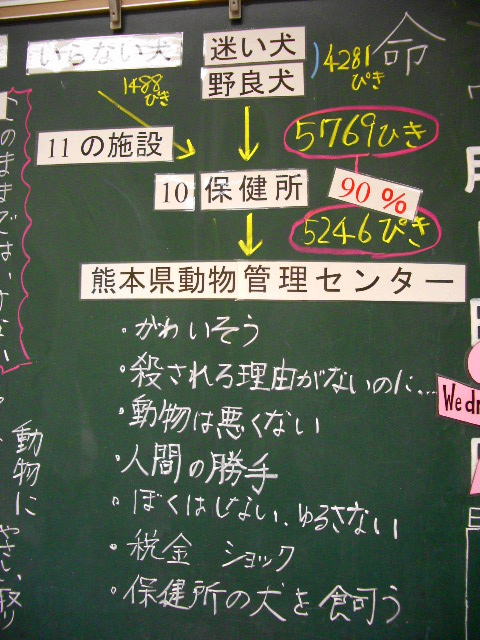 いらない犬
迷い犬
野良犬
4281
ぴき
命
1488
ぴき
11の施設
5769ひき
10 保健所
90%
5246ぴき
熊本県動物管理センター
・かわいそう
・殺される理由がないのに...
・動物は悪くない
・人間の勝手
・ぼくはしない、ゆるさない
・税金 ショック
・保健所の犬を飼う
このままではいけない
動物に やさしい
Wedn